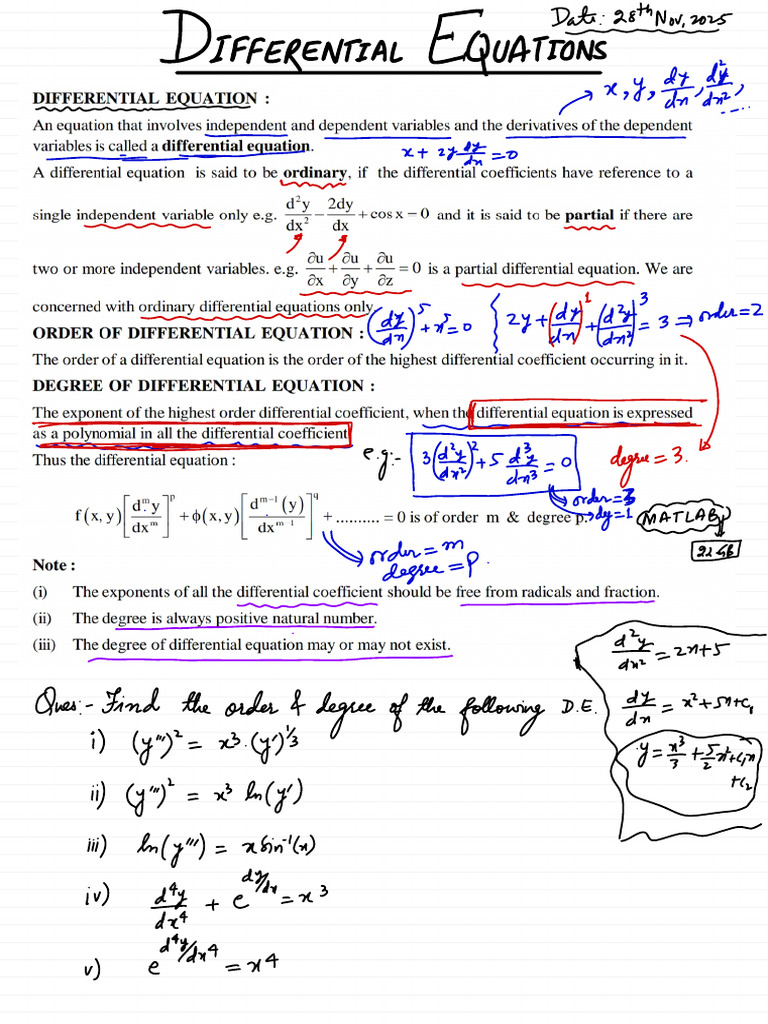 Date: 28th Nov, 2025
DIFFERENTIAL EQUATIONS
DIFFERENTIAL EQUATION :
→ x, y, dy/dx, d²y/dx², .....
An equation that involves independent and dependent variables and the derivatives of the dependent
variables is called a differential equation.
x + 2y dy/dx = 0
A differential equation is said to be ordinary, if the differential coefficients have reference to a
single independent variable only e.g. d²y/dx² − 2dy/dx + cos x = 0 and it is said to be partial if there are
two or more independent variables. e.g. ∂u/∂x + ∂u/∂y + ∂u/∂z = 0 is a partial differential equation. We are
concerned with ordinary differential equations only
ORDER OF DIFFERENTIAL EQUATION :
(dy/dx)⁵ + x⁵ = 0 { 2y + (dy/dx)¹ + (d²y/dx²)³ = 3 ⇒ order = 2
The order of a differential equation is the order of the highest differential coefficient occurring in it.
DEGREE OF DIFFERENTIAL EQUATION :
The exponent of the highest order differential coefficient, when the differential equation is expressed
as a polynomial in all the differential coefficient
degree = 3.
e.g:- 3(d²y/dx²)² + 5 d³y/dx³ = 0
Thus the differential equation :
→ order = 3
f(x, y)[dᵐy/dxᵐ]ᵖ + ϕ(x, y)[dᵐ⁻¹(y)/dxᵐ⁻¹]^q + .......... = 0 is of order m & degree p.
→ dy = 1
MATLAB
22 GB
order = m
degree = p.
Note :
(i) The exponents of all the differential coefficient should be free from radicals and fraction.
(ii) The degree is always positive natural number.
(iii) The degree of differential equation may or may not exist.
d²y/dx² = 2x + 5
dy/dx = x² + 5x + c₁
y = x³/3 + 5/2 x² + c₁x + c₂
Ques:- Find the order & degree of the following D.E.
i) (y''')² = x³·(y')^1/3
ii) (y''')² = x³ ln(y')
iii) ln(y''') = x sin⁻¹(x)
iv) d⁴y/dx⁴ + e^(dy/dx) = x³
v) e^(d⁴y/dx⁴) = x⁴